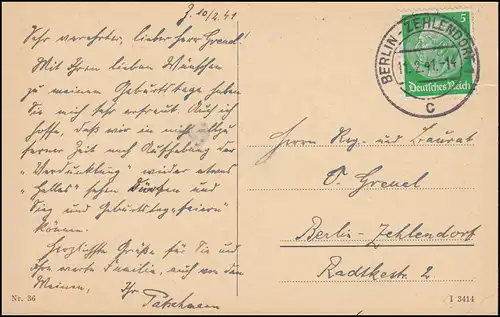 Z. 10/2.41
Sehr verehrter, lieber Herr Greuel.
Mit Ihren lieben Wünschen
zu meinem Geburtstage haben
Sie mich sehr erfreut. Auch ich
hoffe, daß wir in nicht allzu
ferner Zeit nach Aufhebung der
"Verdunklung" wieder etwas
"Helles" sehen dürfen und
Sieg und Geburtstag "feiern"
können.
Herzlichste Grüße für Sie und
Ihre werte Familie, auch von den
Meinen, Ihr
Nr. 36
BERLIN-ZEHLENDORF
11.2.41.-14
C
5
Deutsches Reich
Herrn Reg. und Baurat
O. Greuel
Berlin-Zehlendorf
Radtkestr. 2
I 3414